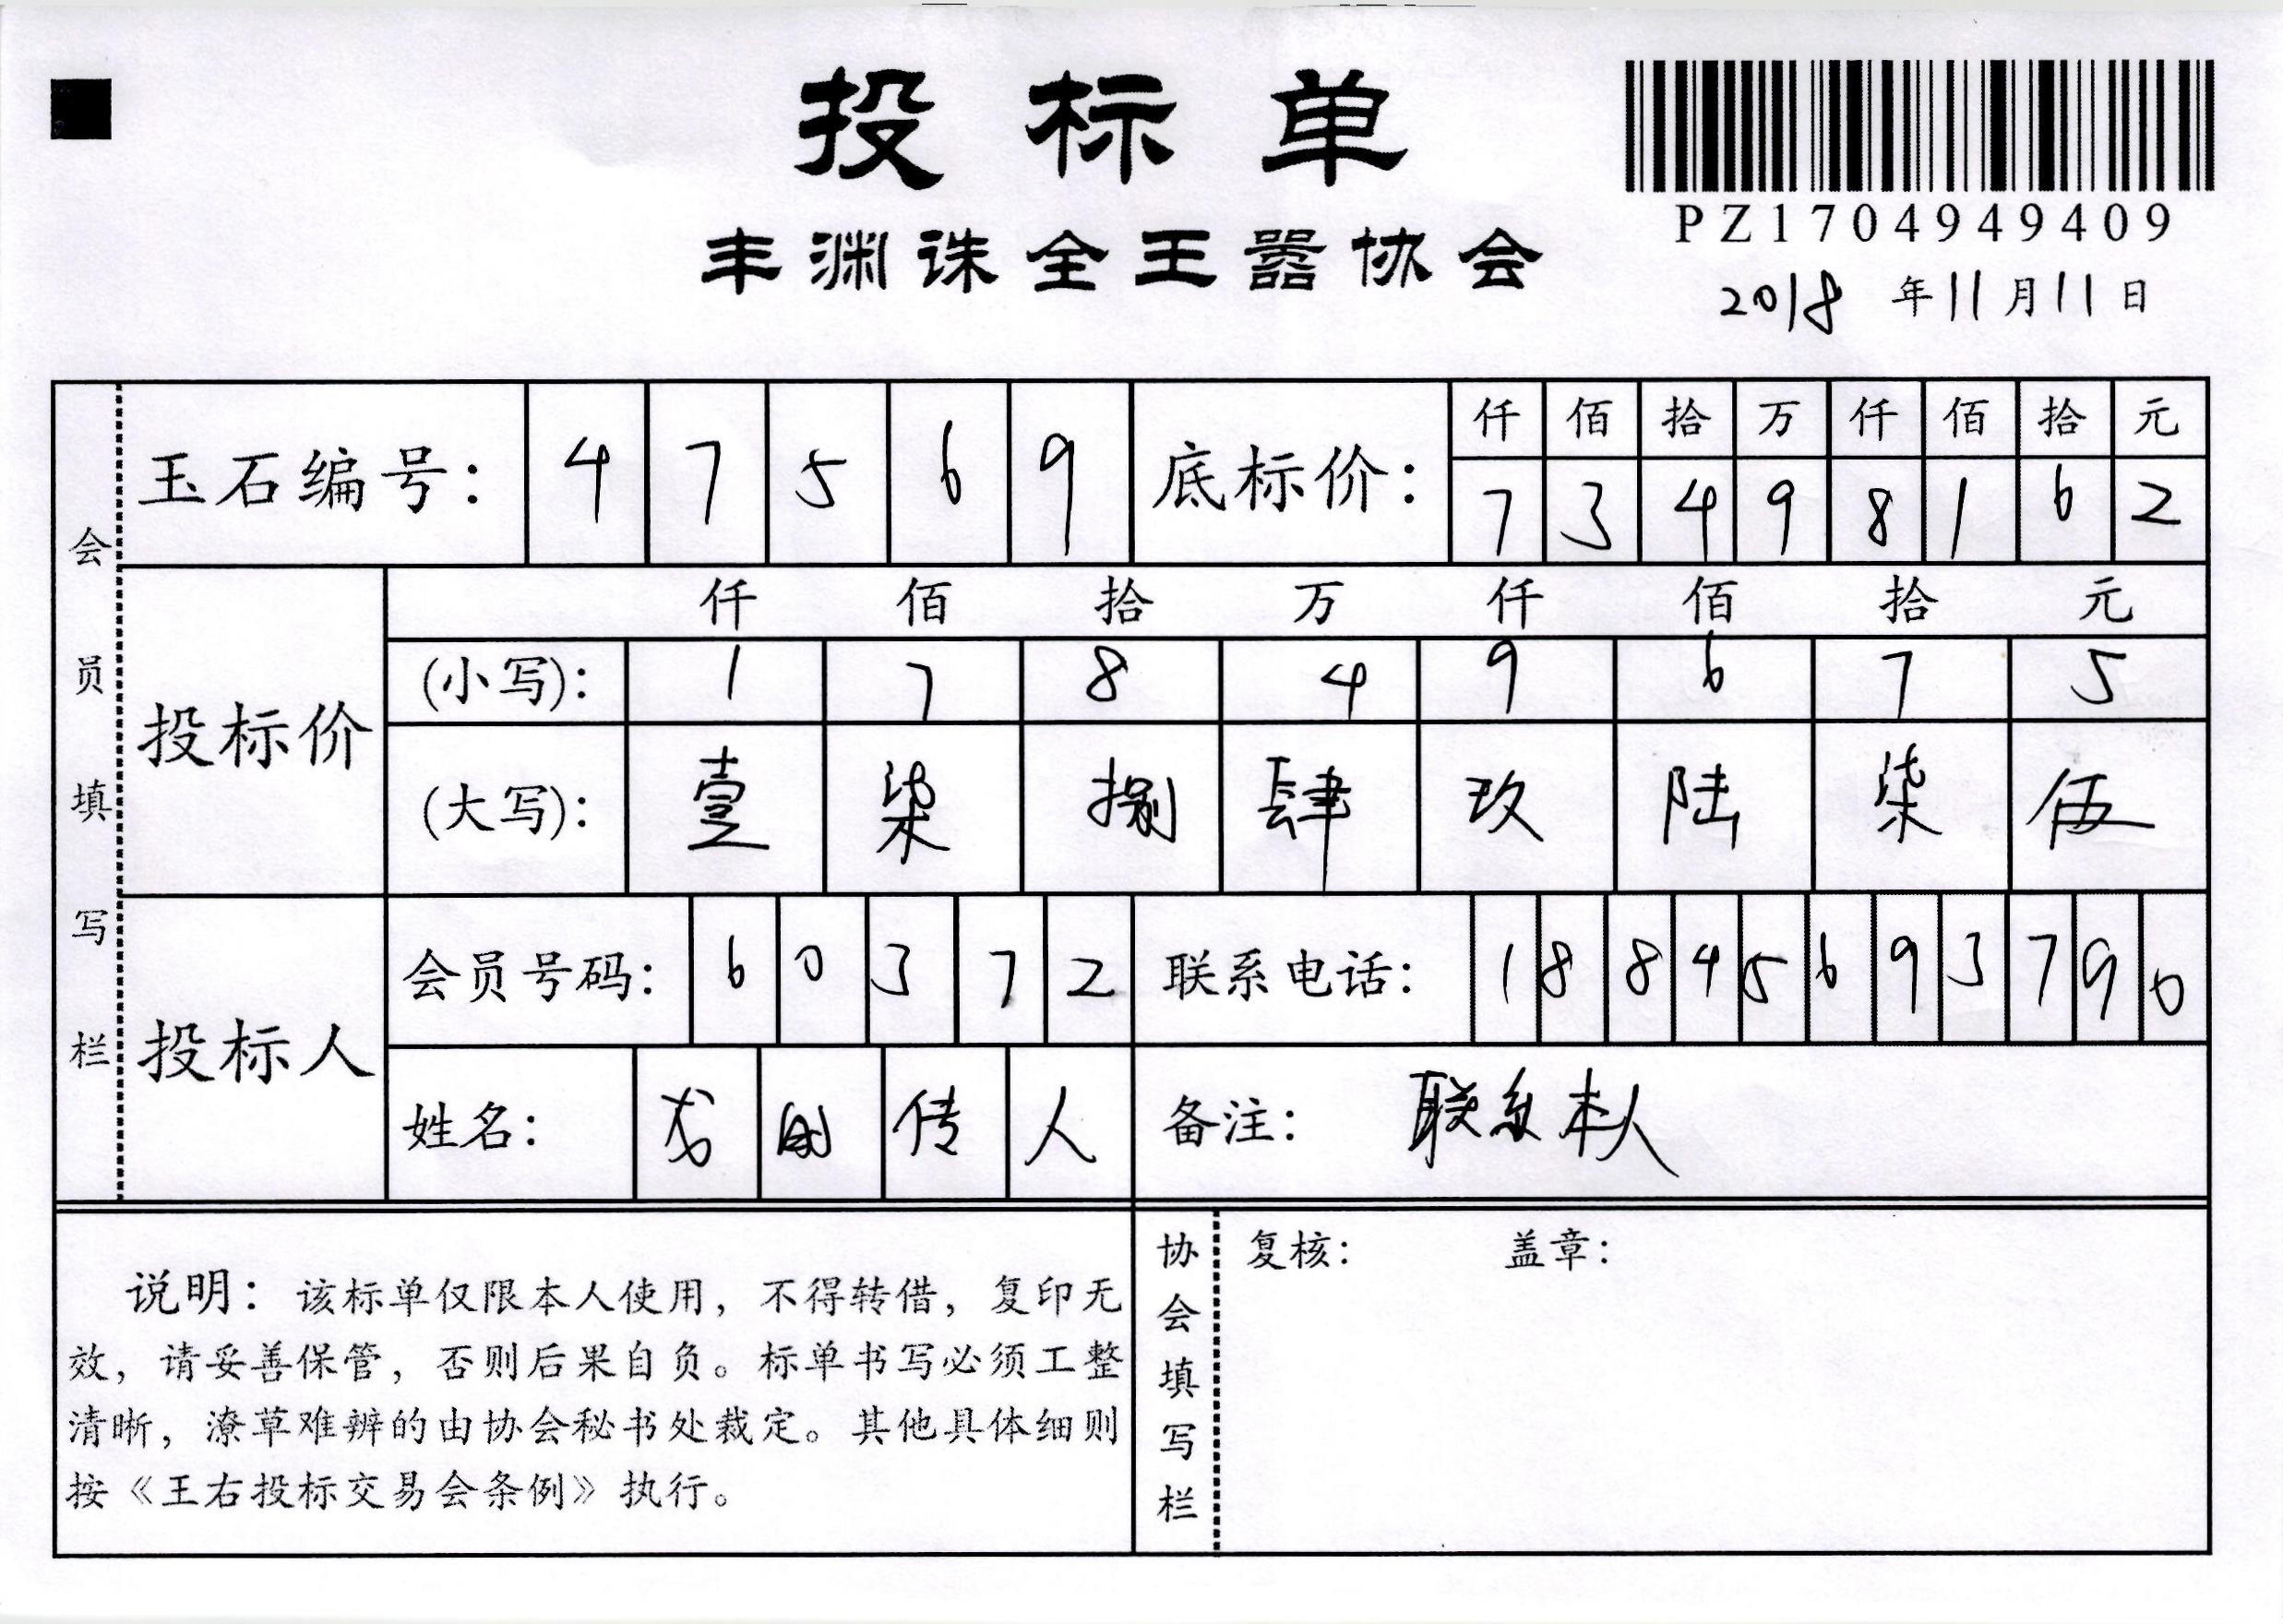 投标单
丰渊诛全王嚣协会
PZ1704949409
2018 年 11 月 11 日
会员填写栏
玉石编号: 4 7 5 6 9
底标价: 仟 佰 拾 万 仟 佰 拾 元
7 3 4 9 8 1 6 2
投标价
仟 佰 拾 万 仟 佰 拾 元
(小写): 1 7 8 4 9 6 7 5
(大写): 壹 柒 捌 肆 玖 陆 柒 伍
投标人
会员号码: 6 0 3 7 2
联系电话: 1 8 8 4 5 6 9 3 7 9 0
姓名: 传 人
备注: 联系本人
说明: 该标单仅限本人使用, 不得转借, 复印无
效, 请妥善保管, 否则后果自负。标单书写必须工整
清晰, 潦草难辨的由协会秘书处裁定。其他具体细则
按《王右投标交易会条例》执行。
协会填写栏
复核: 盖章: